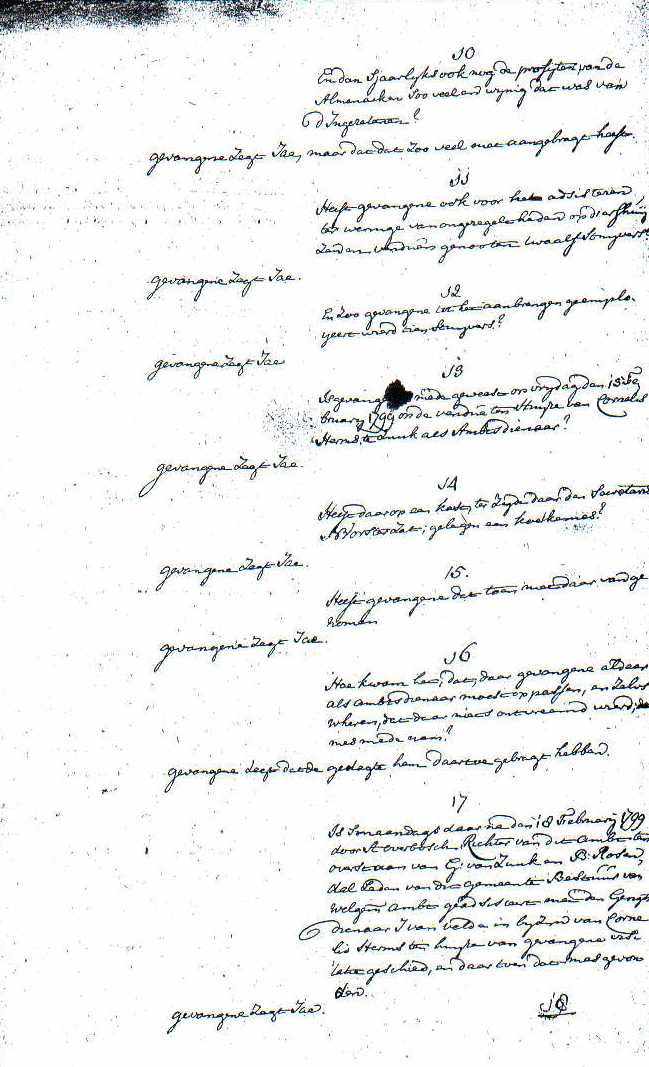 10
En dan Sjaarlyks ook nog de profyten van de
Almenacken soo veel end wynig dat was van
d Ingezetenen?
gevangene Zegt Jae, maar dat dat Zoo veel niet aangebragt heeft
11
Heeft gevangene ook voor het adsisteren
ter weeringe van ongeregeltheden op diershuij
Zen den vendriens genooten twaalf Stuyvers?
gevangene Zegt Jae.
12
En Zoo gevangene tot het aanbrengen geemplo-
yeert werd tien Stuyvers?
gevangene Zegt Jae
13
Is gevangene mede geweest op vrydag den 15 Fe
bruary 1799 on de vendue ten Huyse van Cornelis
Herms, te Lunk als Ambtsdienaar?
gevangene Zegt Jae.
14
Heeft daar op een kast, ter Zyde daar den Secretaris
Vorster Zat, gelegen een koekemes?
gevangene Zegt Jae.
15.
Heeft gevangene dat toen met daar van ge
nomen
gevangene Zegt Jae.
16
Hoe kwam het, dat, daar gevangene aldaar
als ambtsdienaar moest oppassen, en Zelvs
weeren, dat daar niets ontvreemd wierd, de
mes mede nam?
gevangene Zegt dat de gedagte hem daar toe gebragt hebben.
17
Is Smaandags daar na den 18 February 1799
door A overbosch Richter van dit Ambt ten
overstaan van G: van Lunk en B: Rosen,
del Leden van dit gemeente Bestuur van
welgem ambt geadsisteert met den Gerigts
dienaar J van Velden in byZyn van Corne
lis Herms ten huyse van gevangene visi
tatie geschied, en daar toen dat mes gevon
den.
gevangene Zegt Jae.
18